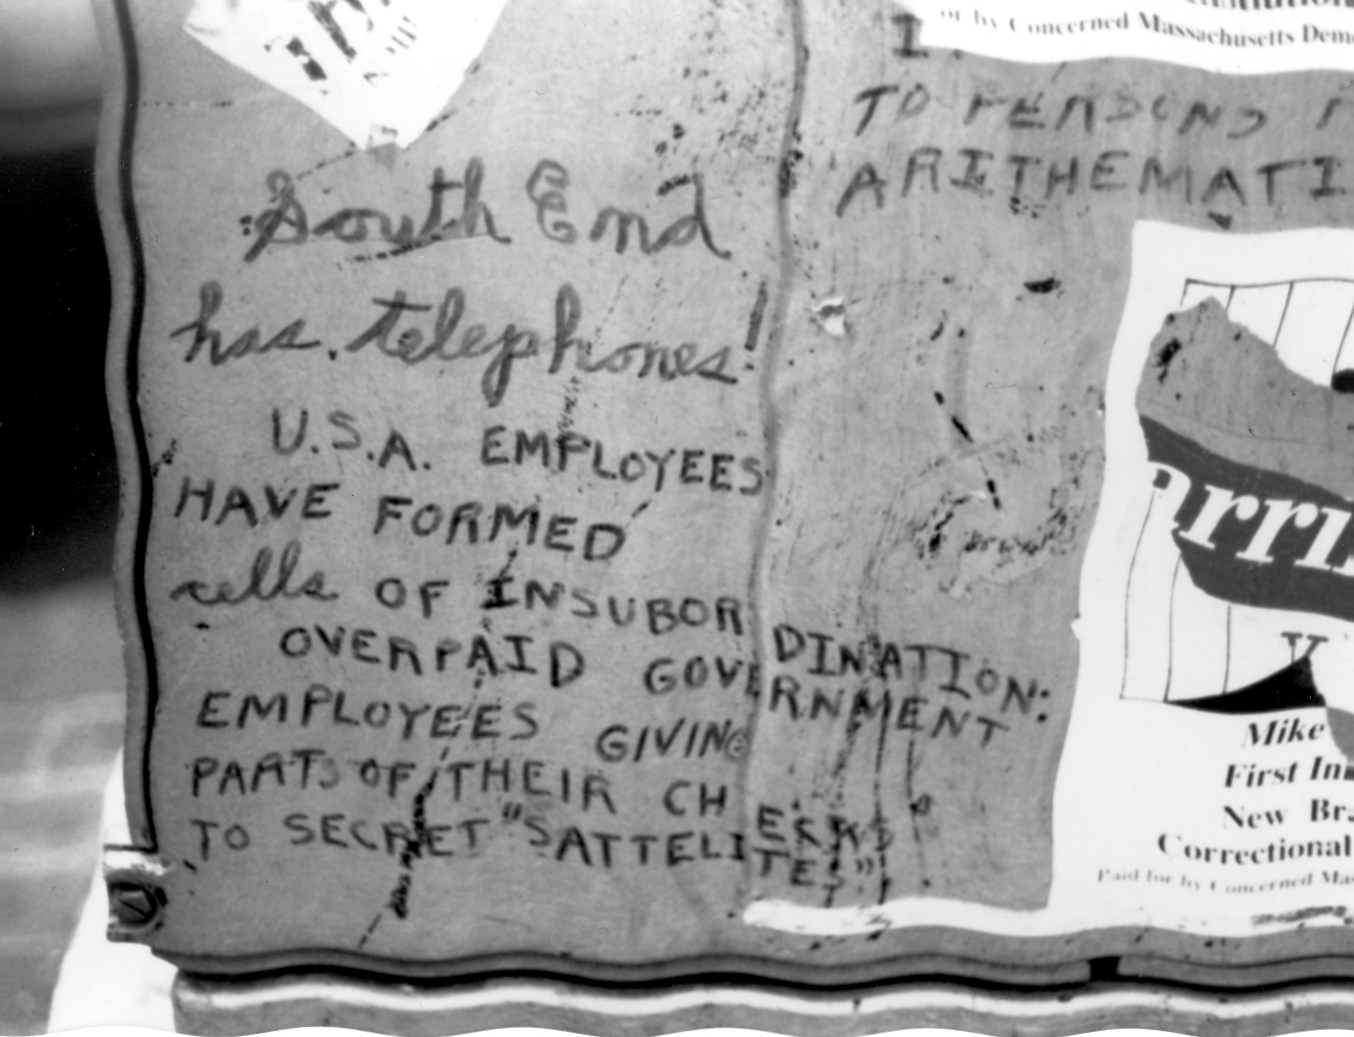 or by Concerned Massachusetts Dem
TO PERSONS
ARITHEMATI
South End
has telephones!
U.S.A. EMPLOYEES
HAVE FORMED
cells OF INSUBORDINATION:
OVERPAID GOVERNMENT
EMPLOYEES GIVING
PARTS OF THEIR CHECKS
TO SECRET "SATTELITES"
arri
Mike
First In
New Br
Correctional
Paid for by Concerned Ma